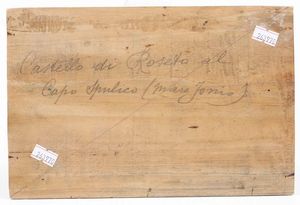 Castello di Roseto al
Capo Spulico (mare Jonio)